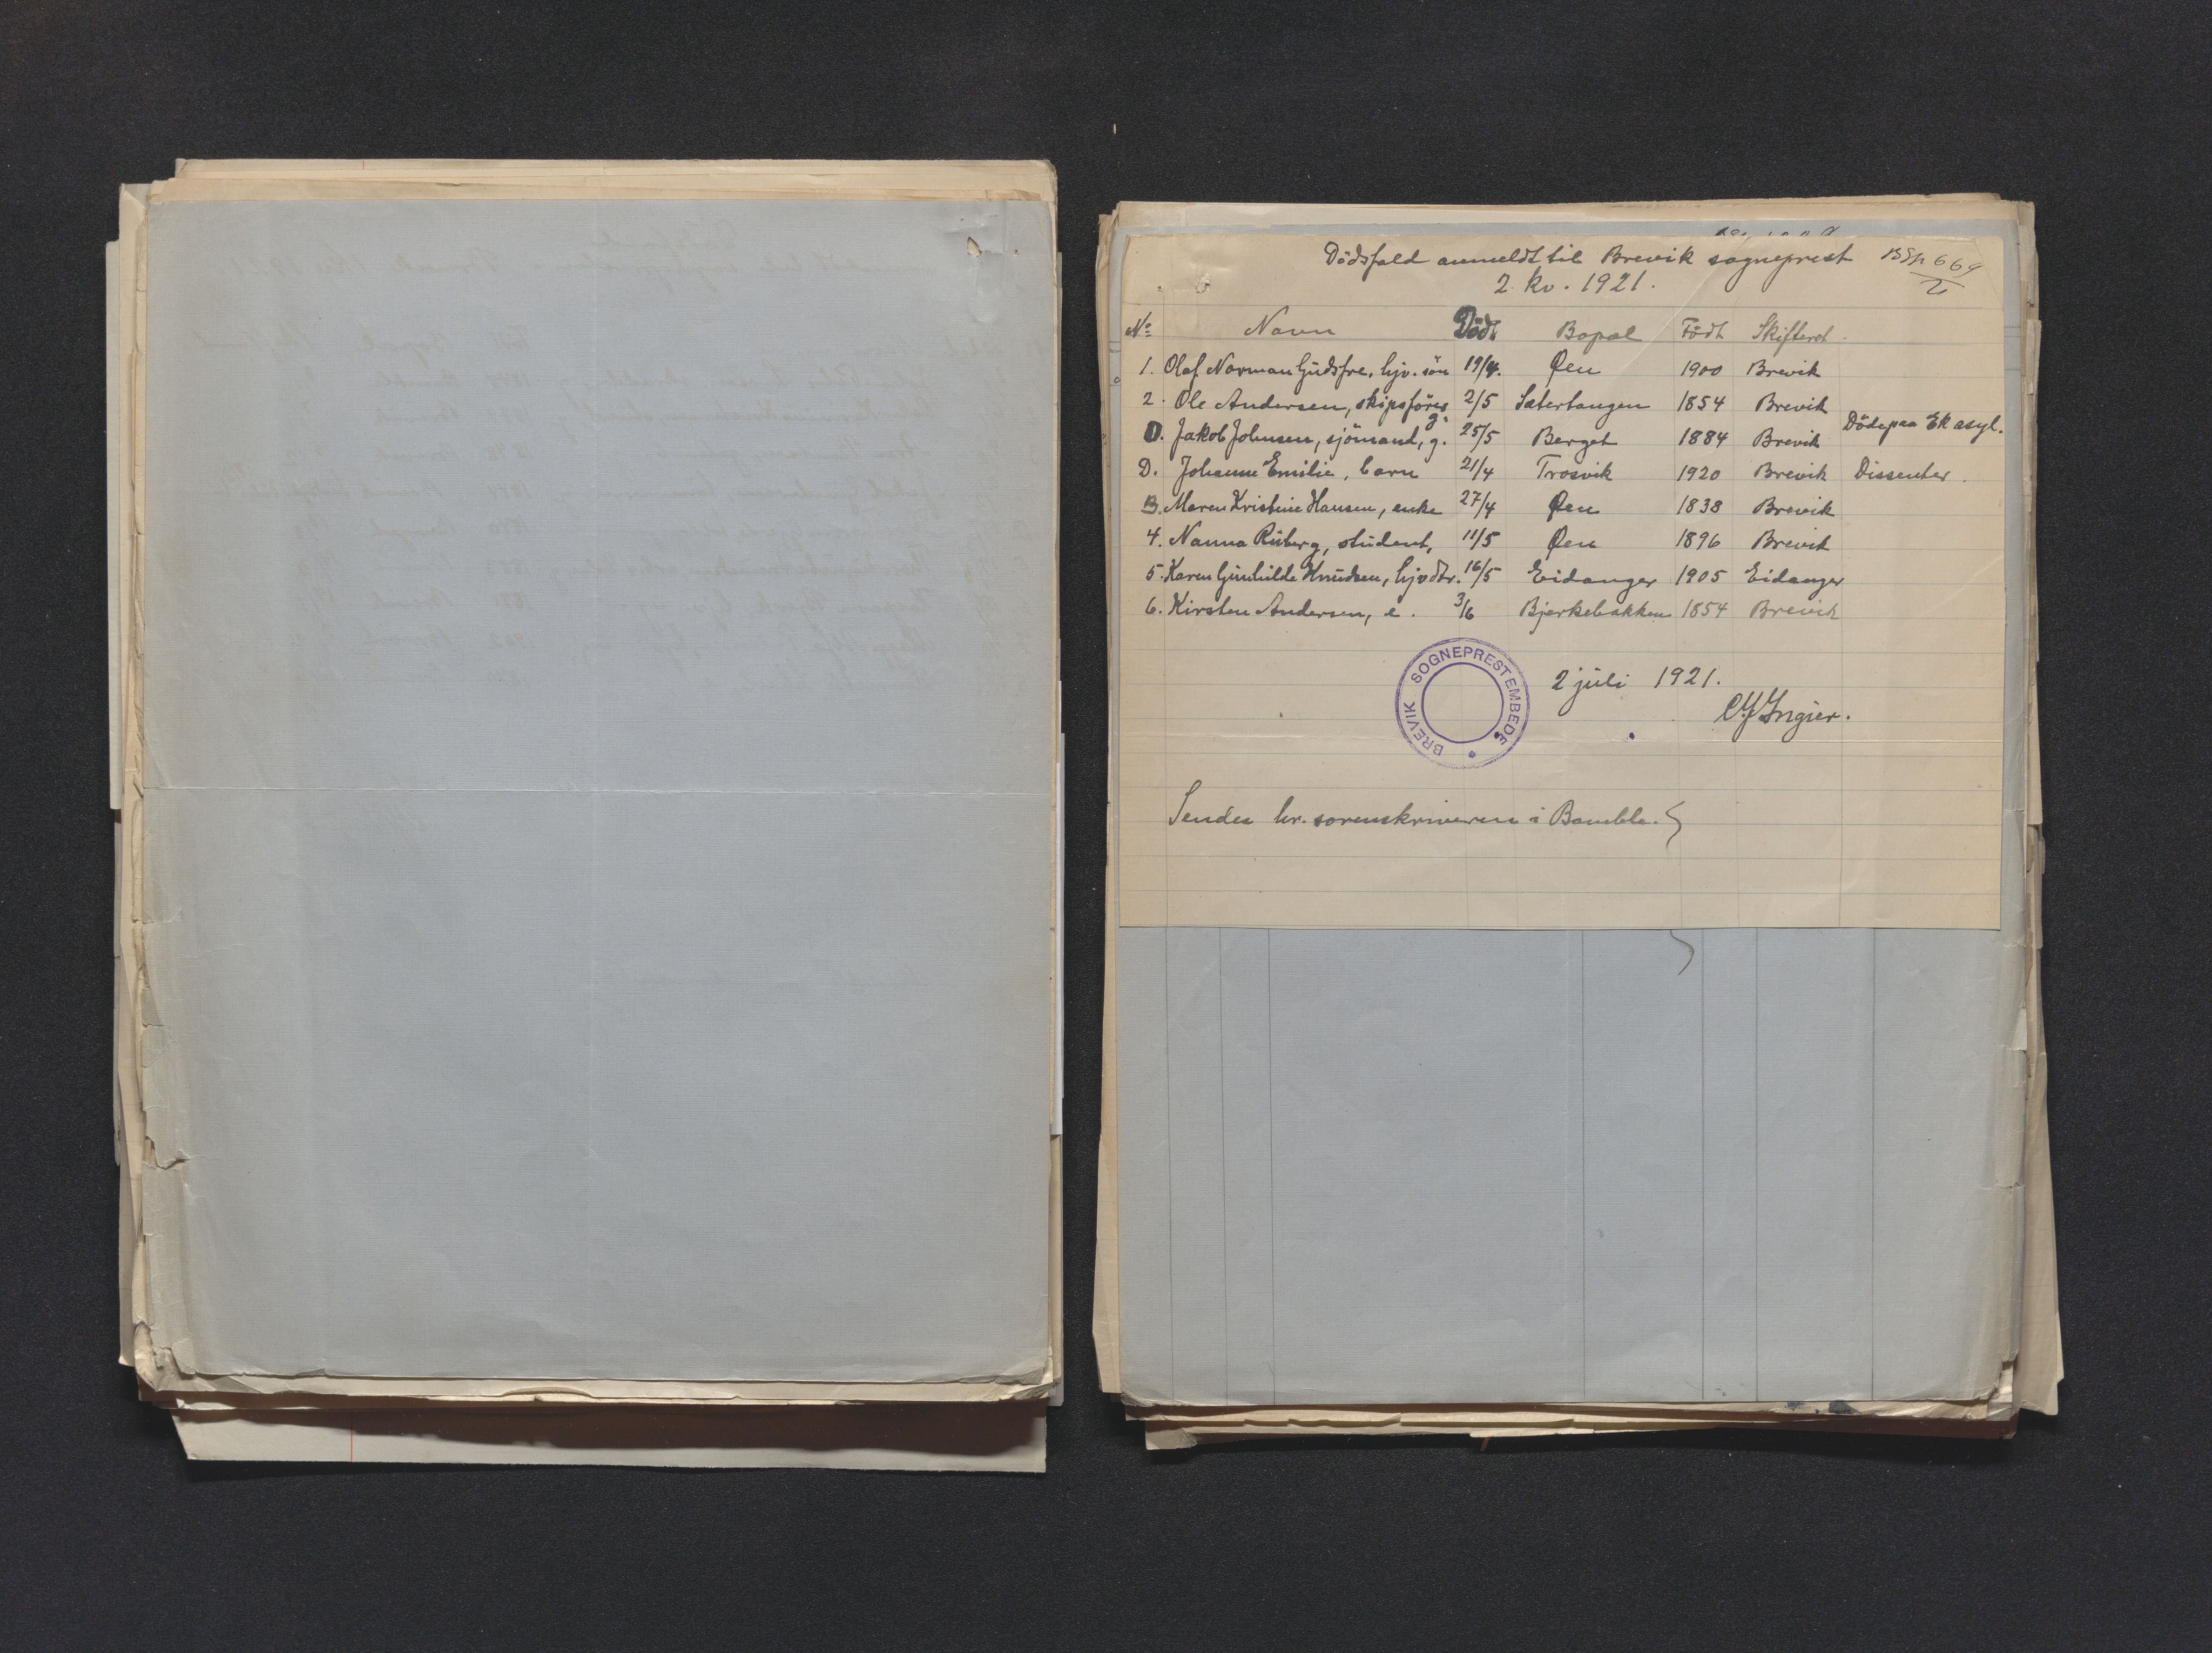 Dödsfald anmeldt til Brevik sogneprest
2 kv. 1921.
No Navn Död Bopæl Født Skifteret.
1. Olaf Norman Gudsfre, hjv. sön 19/4. Øen 1900 Brevik
2. Ole Andersen, skipsfører g. 2/5 Satertangen 1854 Brevik
D. Jakob Johnsen, sjömand, g. 25/5 Berget 1884 Brevik Döde paa Ek asyl.
D. Johanne Emilie, barn 21/4 Trosvik 1920 Brevik Dissenter.
3. Maren Kristine Hansen, enke 27/4 Øen 1838 Brevik
4. Nanna Riiberg, student, 11/5 Øen 1896 Brevik
5. Karen Gunhilde Knudsen, hjv dtr. 16/5 Eidanger 1905 Eidanger
6. Kirsten Andersen, e. 3/6 Bjerkebakken 1854 Brevik
BREVIK SOGNEPRESTEMBEDE
2 juli 1921.
Ingier.
Sendes hr. sorenskriveren i Bamble.